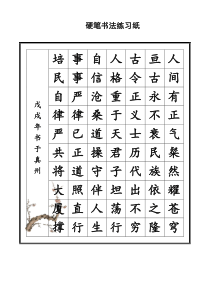 硬笔书法练习纸
人间有正气粲然耀苍穹
亘古永不民族依之隆
古今正义士历代出不穷
人格重于天君子坦荡行
自信沧桑道操守伴人生
事事严律己正道照直行
培民自律严共将大厦撑
戊戌年书于真州